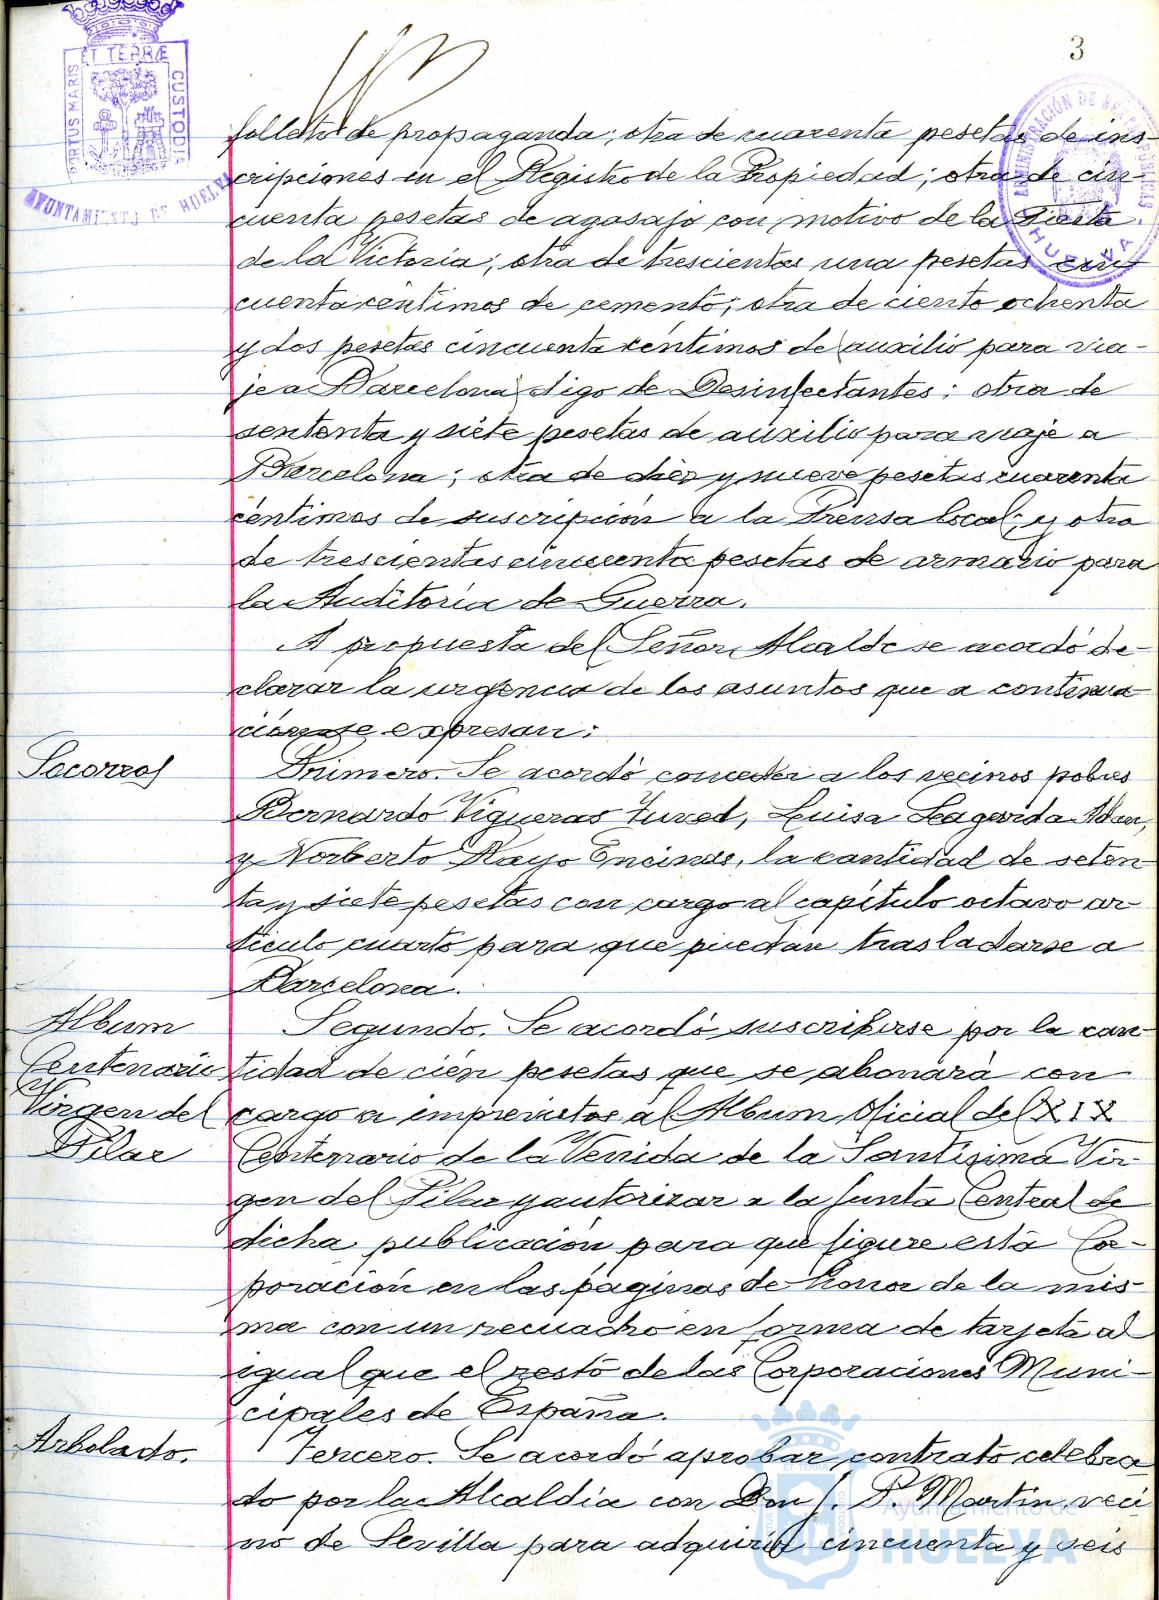 3
PORTUS MARIS ET TERRÆ CUSTODIA
AYUNTAMIENTO DE HUELVA
HUELVA
folletos de propaganda; otra de cuarenta pesetas de ins-
cripciones en el Registro de la Propiedad; otra de cin-
cuenta pesetas de agasajo con motivo de la Fiesta
de la Victoria; otra de trescientas una pesetas cin-
cuenta céntimos de cemento; otra de ciento ochenta
y dos pesetas cincuenta céntimos de (auxilio para via-
je a Barcelona) digo de Desinfectantes; otra de
sententa y siete pesetas de auxilio para viaje a
Barcelona; otra de diez y nueve pesetas cuarenta
céntimos de suscripción a la Prensa local; y otra
de trescientas cincuenta pesetas de armario para
la Auditoría de Guerra.
A propuesta del Señor Alcalde se acordó de-
clarar la urgencia de los asuntos que a continua-
ción se expresan:
Socorros
Primero. Se acordó conceder a los vecinos pobres
Bernardo Vigueras Luisa Adan,
y Norberto Rayo Encinas, la cantidad de seten-
ta y siete pesetas con cargo al capítulo octavo ar-
tículo cuarto para que puedan trasladarse a
Barcelona.
Album
Centenario
Virgen del
Pilar
Segundo. Se acordó suscribirse por la can-
tidad de cien pesetas que se abonará con
cargo a imprevistos al Album Oficial del XIX
Centenario de la Venida de la Santísima Vir-
gen del Pilar y autorizar a la Junta Central de
dicha publicación para que figure esta Co-
poración en las páginas de honor de la mis-
ma con un recuadro en forma de tarjeta al
igual que el resto de las Corporaciones Muni-
cipales de España.
Arbolado.
Tercero. Se acordó aprobar contrato celebra-
do por la Alcaldía con Don J. P. Martín, veci-
no de Sevilla para adquirir cincuenta y seis
Ayuntamiento de
HUELVA